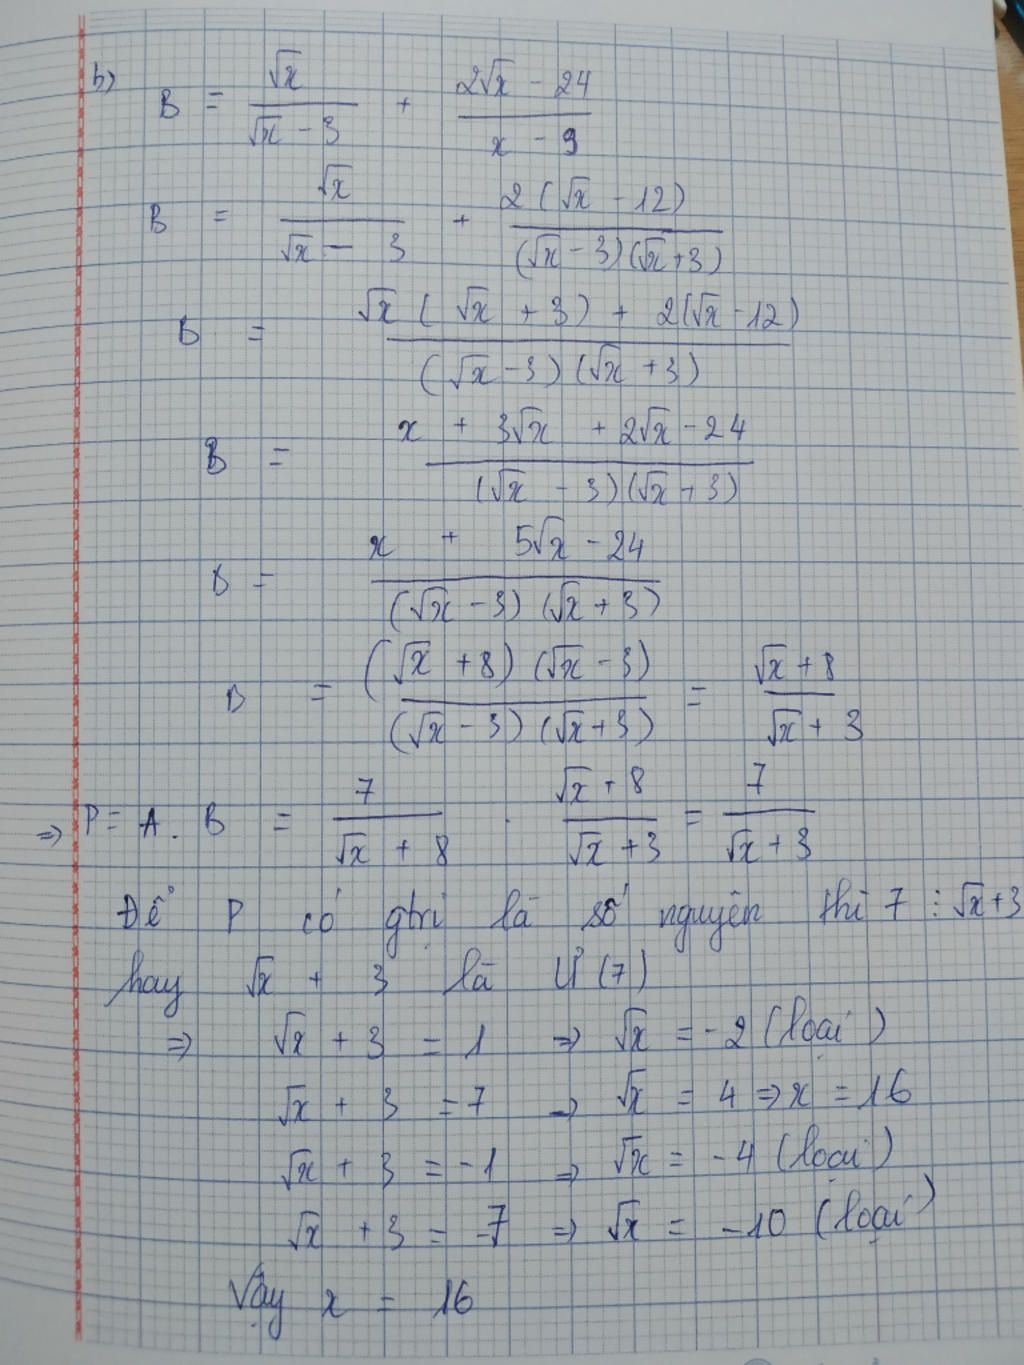 b) B = √x / (√x - 3) + (2√x - 24) / (x - 9)
B = √x / (√x - 3) + 2(√x - 12) / (√x - 3)(√x + 3)
B = √x(√x + 3) + 2(√x - 12) / (√x - 3)(√x + 3)
B = x + 3√x + 2√x - 24 / (√x - 3)(√x + 3)
B = x + 5√x - 24 / (√x - 3)(√x + 3)
B = (√x + 8)(√x - 3) / (√x - 3)(√x + 3) = (√x + 8) / (√x + 3)
=> P = A . B = 7 / (√x + 8) . (√x + 8) / (√x + 3) = 7 / (√x + 3)
Để P có gtrị là số nguyên thì 7 ⋮ √x + 3
hay √x + 3 là Ư(7)
=> √x + 3 = 1 => √x = -2 (loại)
√x + 3 = 7 => √x = 4 => x = 16
√x + 3 = -1 => √x = -4 (loại)
√x + 3 = -7 => √x = -10 (loại)
Vậy x = 16